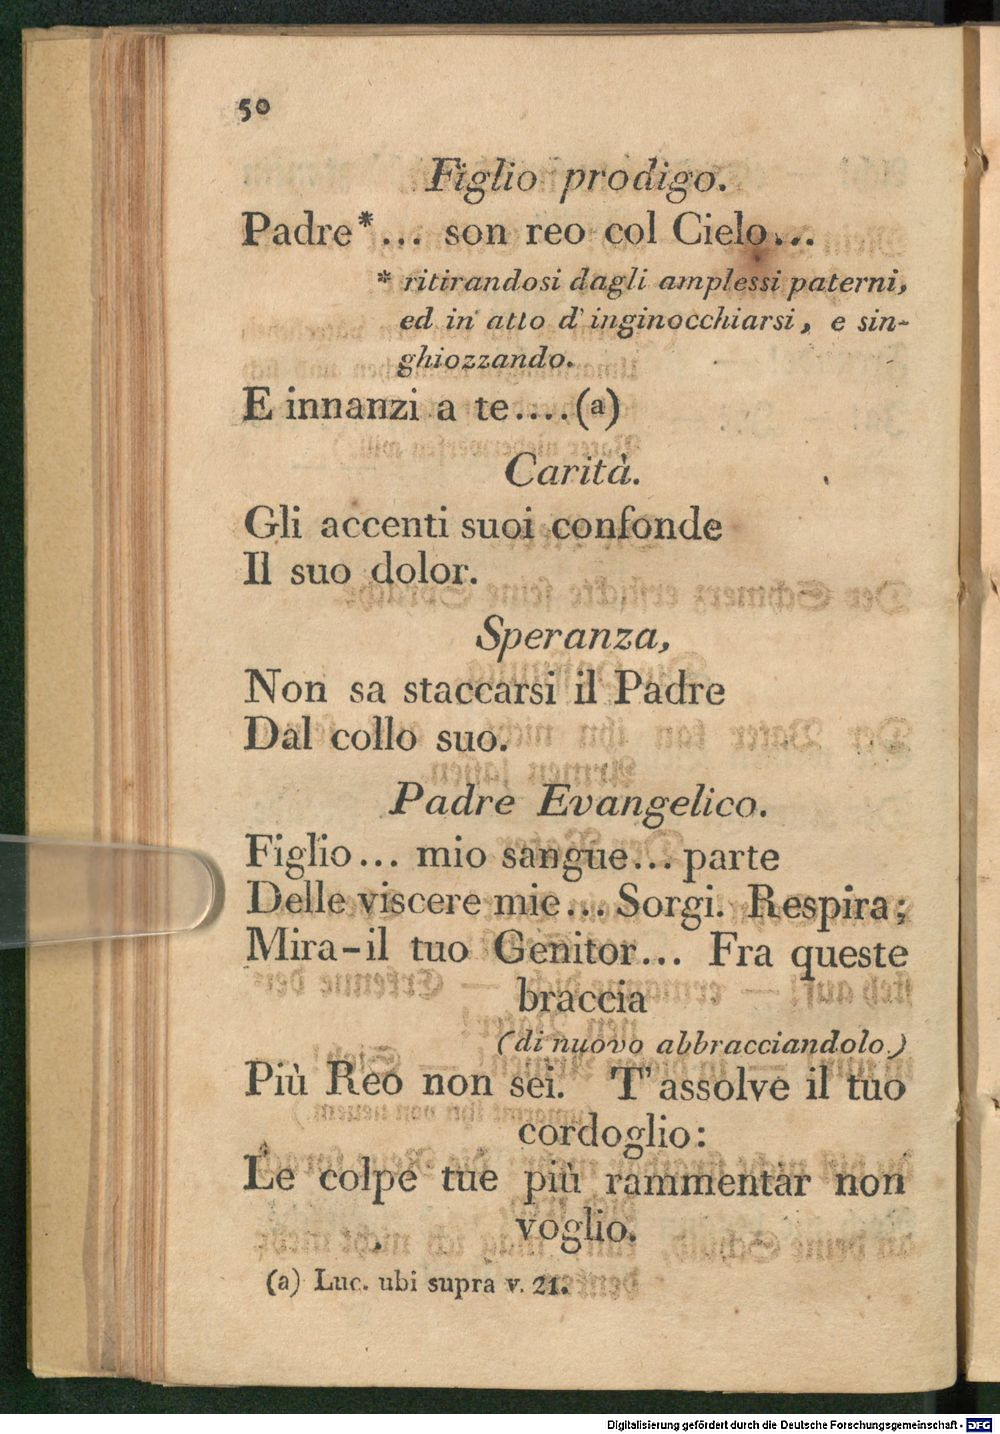 50
Figlio prodigo.
Padre*... son reo col Cielo...
* ritirandosi dagli amplessi paterni,
ed in atto d'inginocchiarsi, e sin-
ghiozzando.
E innanzi a te....(a)
Carità.
Gli accenti suoi confonde
Il suo dolor.
Speranza,
Non sa staccarsi il Padre
Dal collo suo.
Padre Evangelico.
Figlio... mio sangue... parte
Delle viscere mie... Sorgi. Respira;
Mira-il tuo Genitor... Fra queste
braccia
(di nuovo abbracciandolo.)
Più Reo non sei. T'assolve il tuo
cordoglio:
Le colpe tue più rammentar non
voglio.
(a) Luc. ubi supra v. 21.
Digitalisierung gefördert durch die Deutsche Forschungsgemeinschaft - DFG